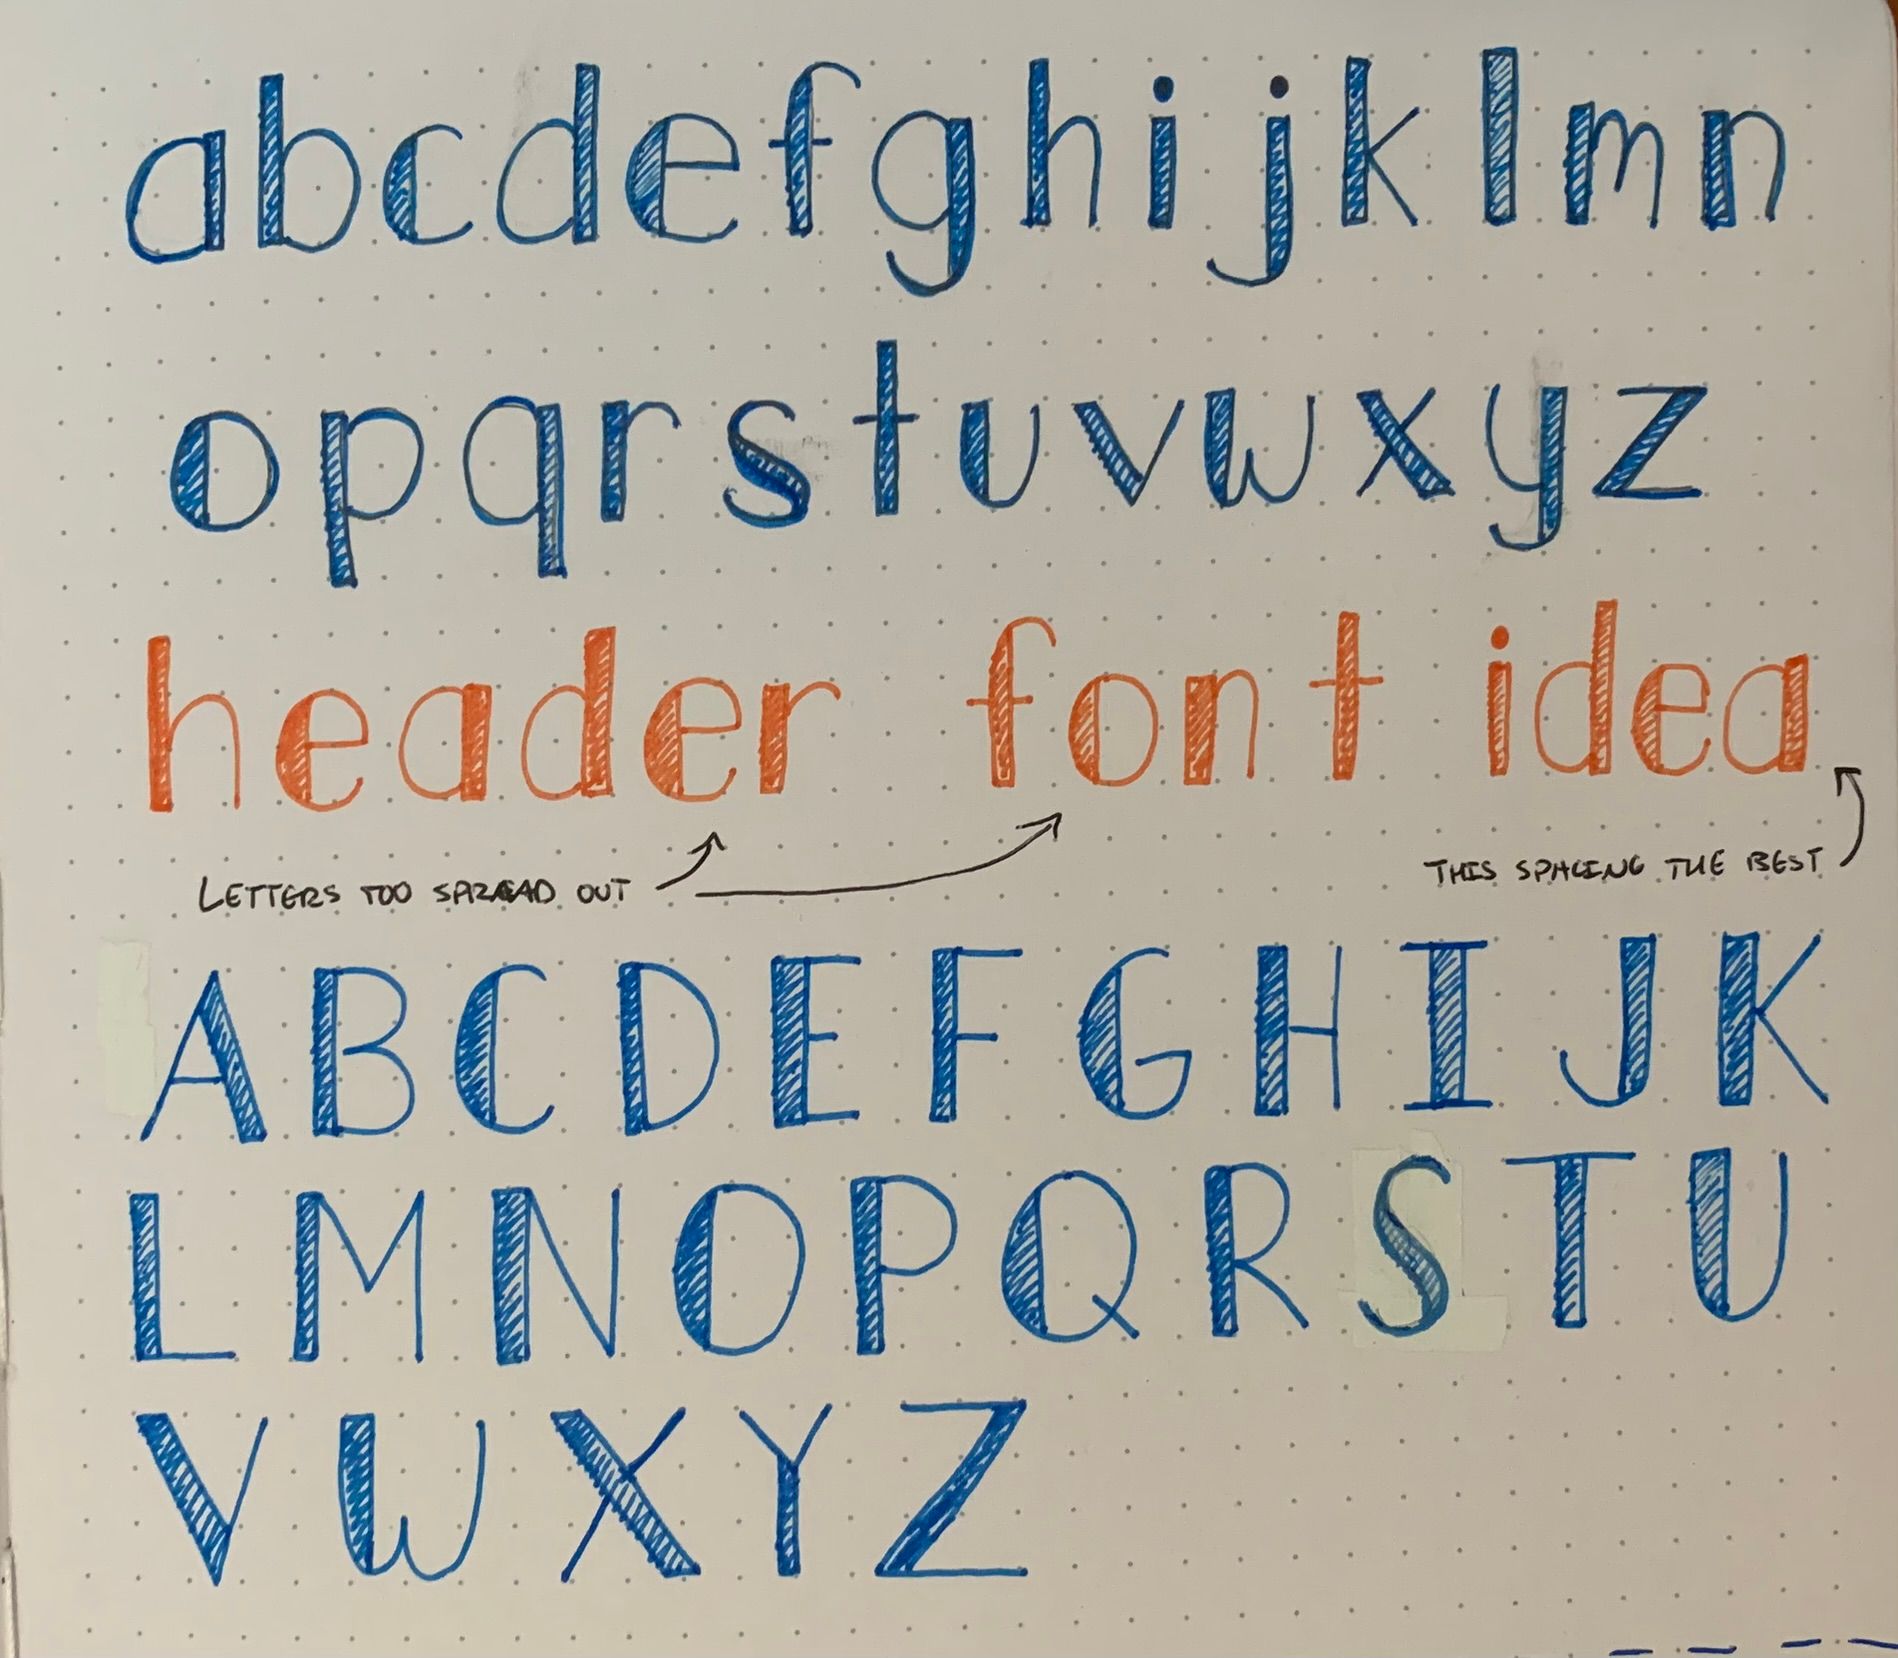 abcdefghijklmn
opqrstuvwxyz
header font idea
LETTERS TOO SPREAD OUT
THIS SPACING THE BEST
ABCDEFGHIJK
LMNOPQRSTU
VWXYZ